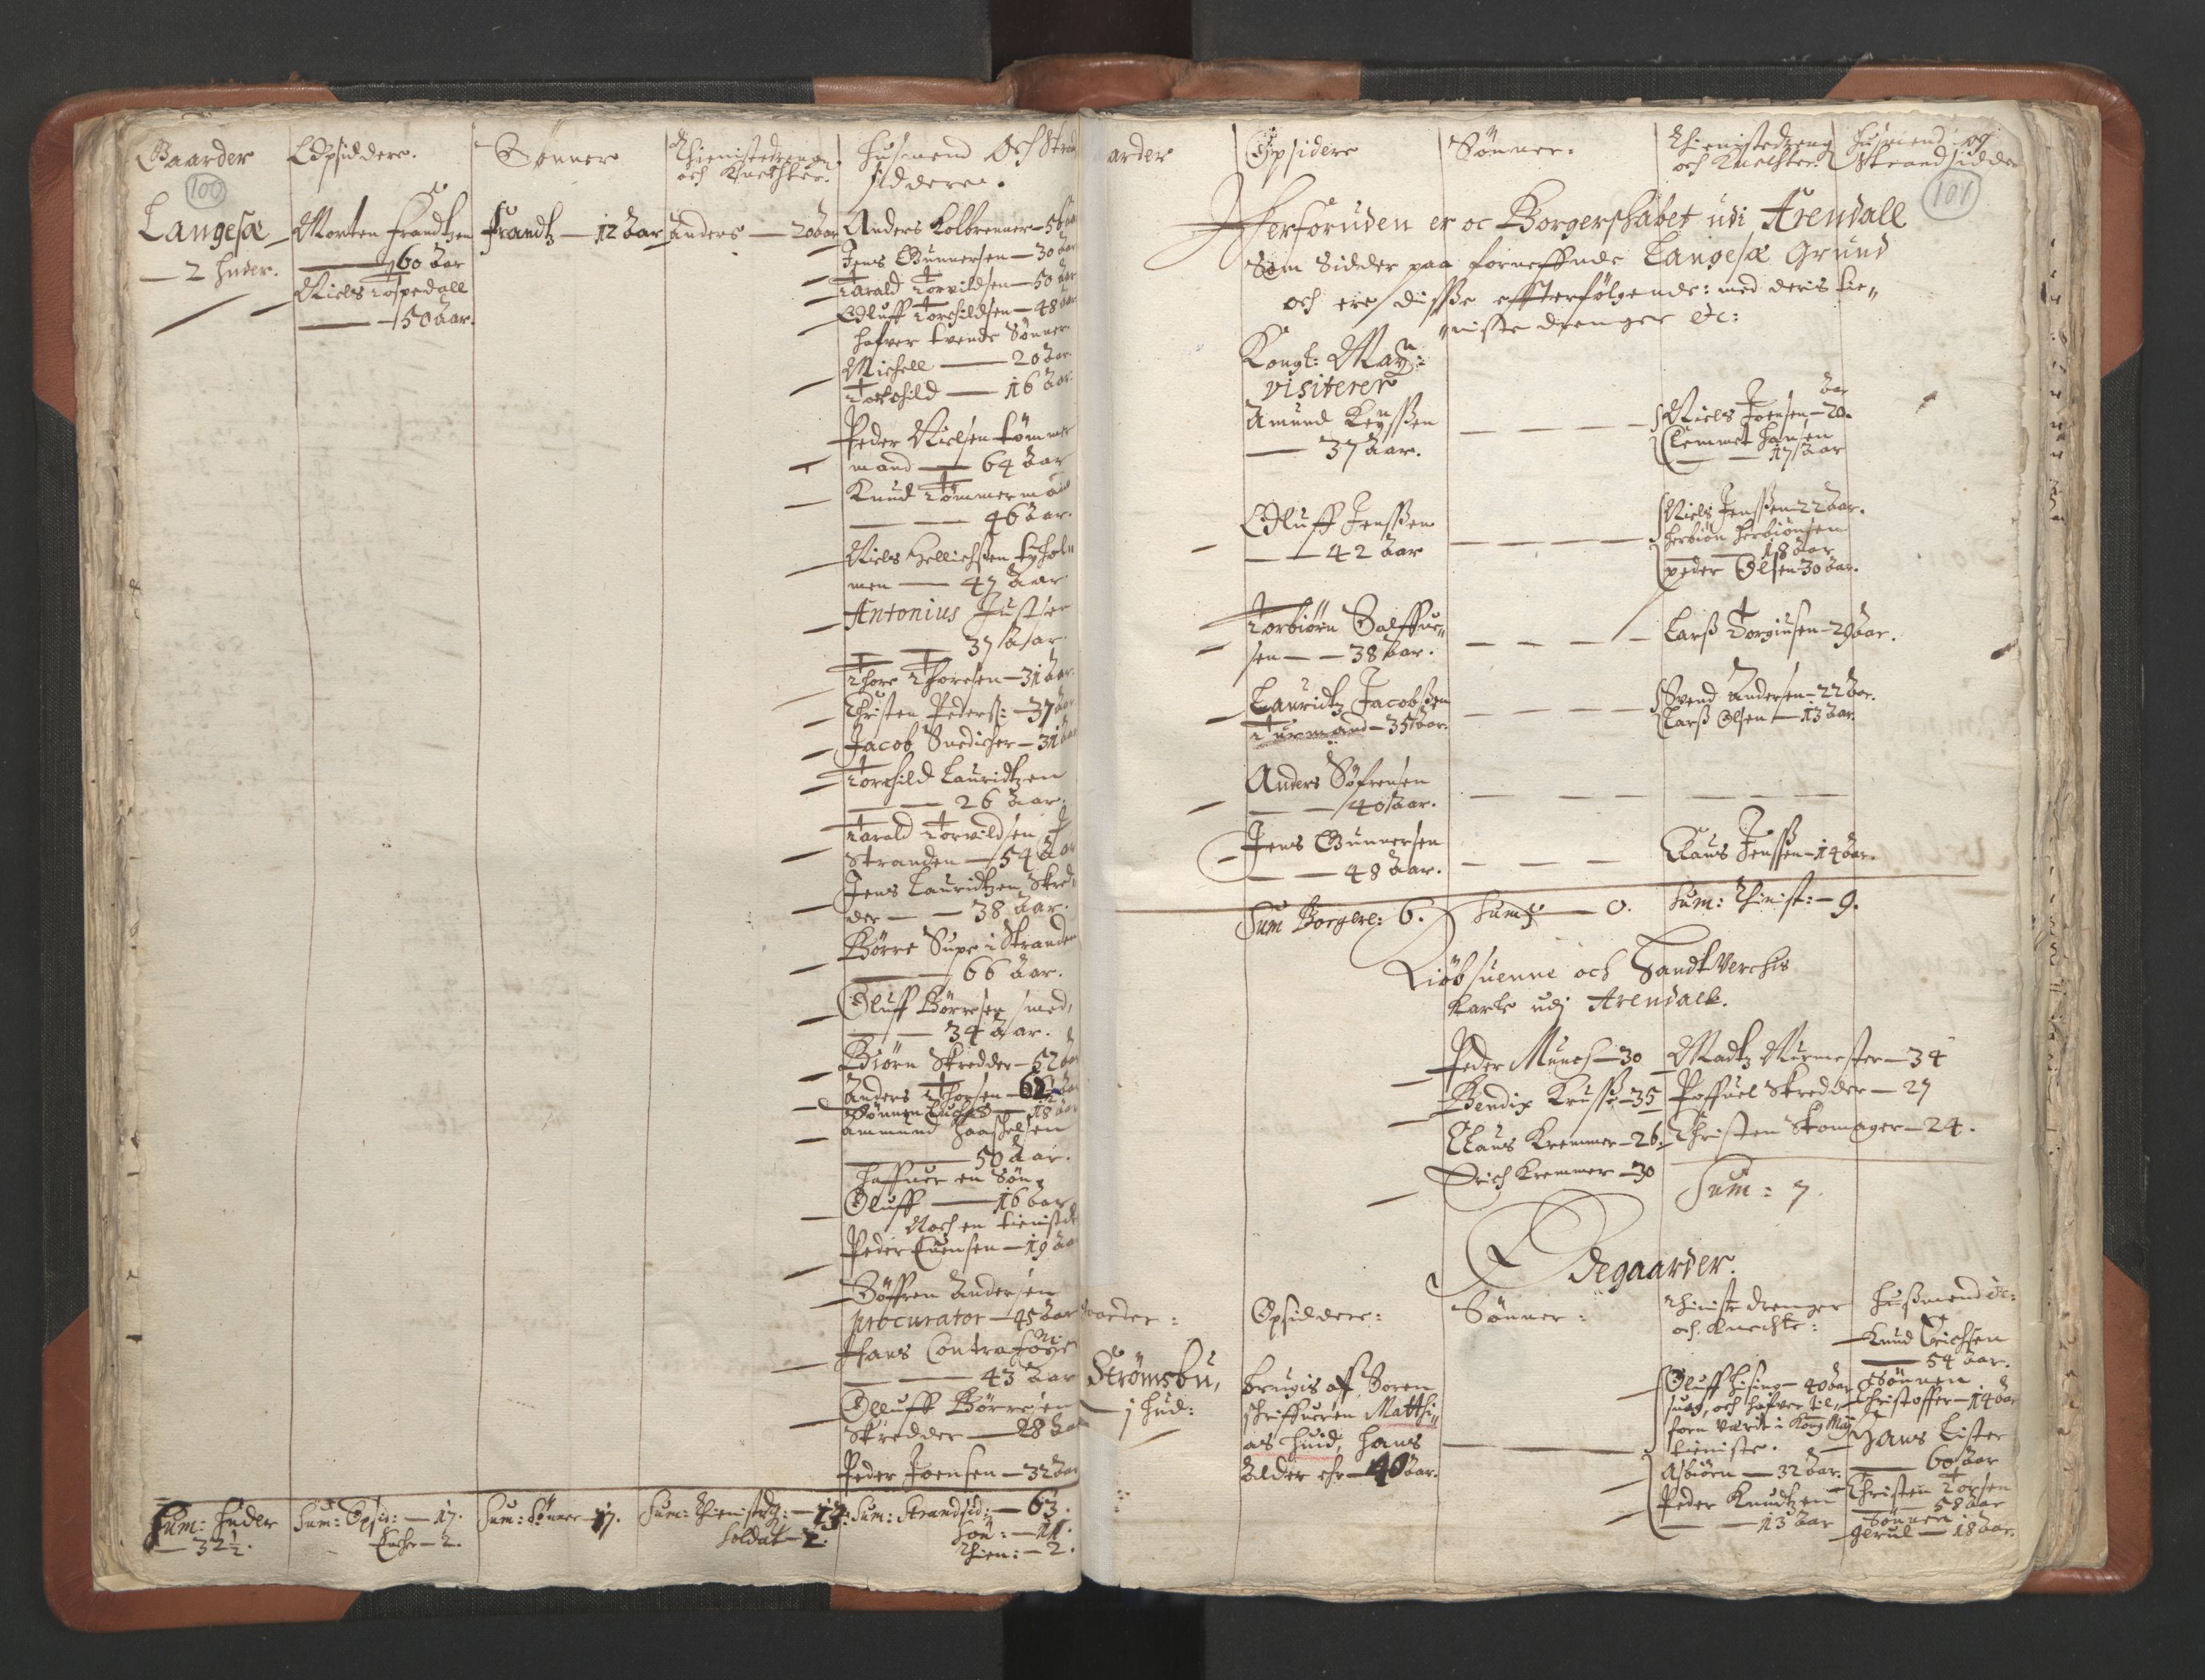 Gaarder
Opsiddere.
Sønner
Thienistedrenge
och Knechter.
Husmend Och Strand
sidderen.
100
Langesæ
2 huder.
Morten Frandtzen
60 aar
Niels Tospedall
50 aar.
Frandtz — 12 aar
Anders — 20 aar
Anders Kolbrenner — 56 aar
Jens Gunnersen — 30 aar
Tarald Torvildsen — 50 aar
Oluff Torchildsen — 48 aar
hafver tvende Sønner
Michell — 20 aar
Torchild — 16 aar
Peder Nielsen tømmer
mand — 64 aar
Knud Tømmerman
46 aar.
Niels Hellichsen tyhol„
men — 47 aar
Antonius Justsen
37 aar
Thore Thoresen — 31 aar
Christen Peders: — 37 aar
Jacob Snedicher — 31 aar
Torchild Lauridtzen
26 aar.
Tarald Torvildsen J
Stranden — 54 aar
Jens Lauridtzen Skred„
der — 38 aar.
Børre Supe i Stranden
66 aar.
Oluff Børresen smed,
34 aar.
Biørn Skredder — 52 aar
Anders Thorsen — 62 aar
Sønnen Luchas — 18 aar
Ammund Haachelsen
50 aar.
haffuer en Søn
Oluff — 16 aar
Noch en tieniste
Peder Euensen — 19 aar
Søffren Andersen
procurator — 45 aar
Hans Contrafoyer
43 aar
Olluff Børresen
Skredder — 28 aar
Peder Joensen — 32 aar
Sum: huder
32½.
Sum: Opsid: — 17.
Encher — 2.
Sum: Sønner — 17.
Sum: Thienistdr: — 13.
Soldat — 2.
Sum: Strandsid: — 63.
Søn: — 11.
Thien: — 2.
arder
Opsidere
Sønner.
Thienistedreng
och Knechter.
Husmend og
Strandsidde
101
Herforuden er oc Borgerskabet udi Arendall
Som Sidder paa forneffnde Langesæ Grund
och ere disse effterfølgende: med deris tie„
„niste drenger etc:
Kongl: Maytz:
visiterer
Amund Keyssen
37 aar.
Niels Joensen — 20 aar
Clemmet Hansen
17 aar
Oluff Jenssen
42 aar
Niels Jenssen 22 aar.
Herbiøn Herbiønsen
18 aar
Peder Olsen 30 aar.
Torbiørn Salffue„
sen — 38 aar.
Larss Torgiusen — 29 aar.
Lauridtz Jacobssen
Furmand — 35 aar.
Svend Andersen — 22 aar.
Larss Olsen — 13 aar
Anders Søfrensen
40 aar.
Jens Gunnersen
48 aar.
Claus Jenssen — 14 aar.
Sum Borgere: 6.
Sum S — 0.
Sum: Thinist: — 9.
Kiøbsuenne och Handtverchs
Karle udj Arendall.
Peder Munch — 30
Madtz Murmester — 34
Bendix Krusse — 35
Poffuel Skredder — 27
Claus Kremmer — 26.
Christen Skomager — 24.
Erich Kremmer — 30
Sum: 7.
Ødegaarder.
aarder:
Opsiddere:
Sønner:
Thiniste drenger
och Knechte:
Hussmend etc:
Strømsbu,
1 hud:
brugis af Soren
schriffueren Matthi„
as Huid, hans
Alder ehr — 40 aar.
Oluff Lising — 40 aar
suag, och hafver til„
forn værit i Kong May
tieniste.
Asbiørn — 32 aar.
Peder Knudtzen
13 aar
Knud Erichsen
54 aar.
Sønnen
Christoffer — 14 aar
Hans Lister
60 aar
Christen Torsen
58 aar
Sønnen
Gerul — 18 aar.